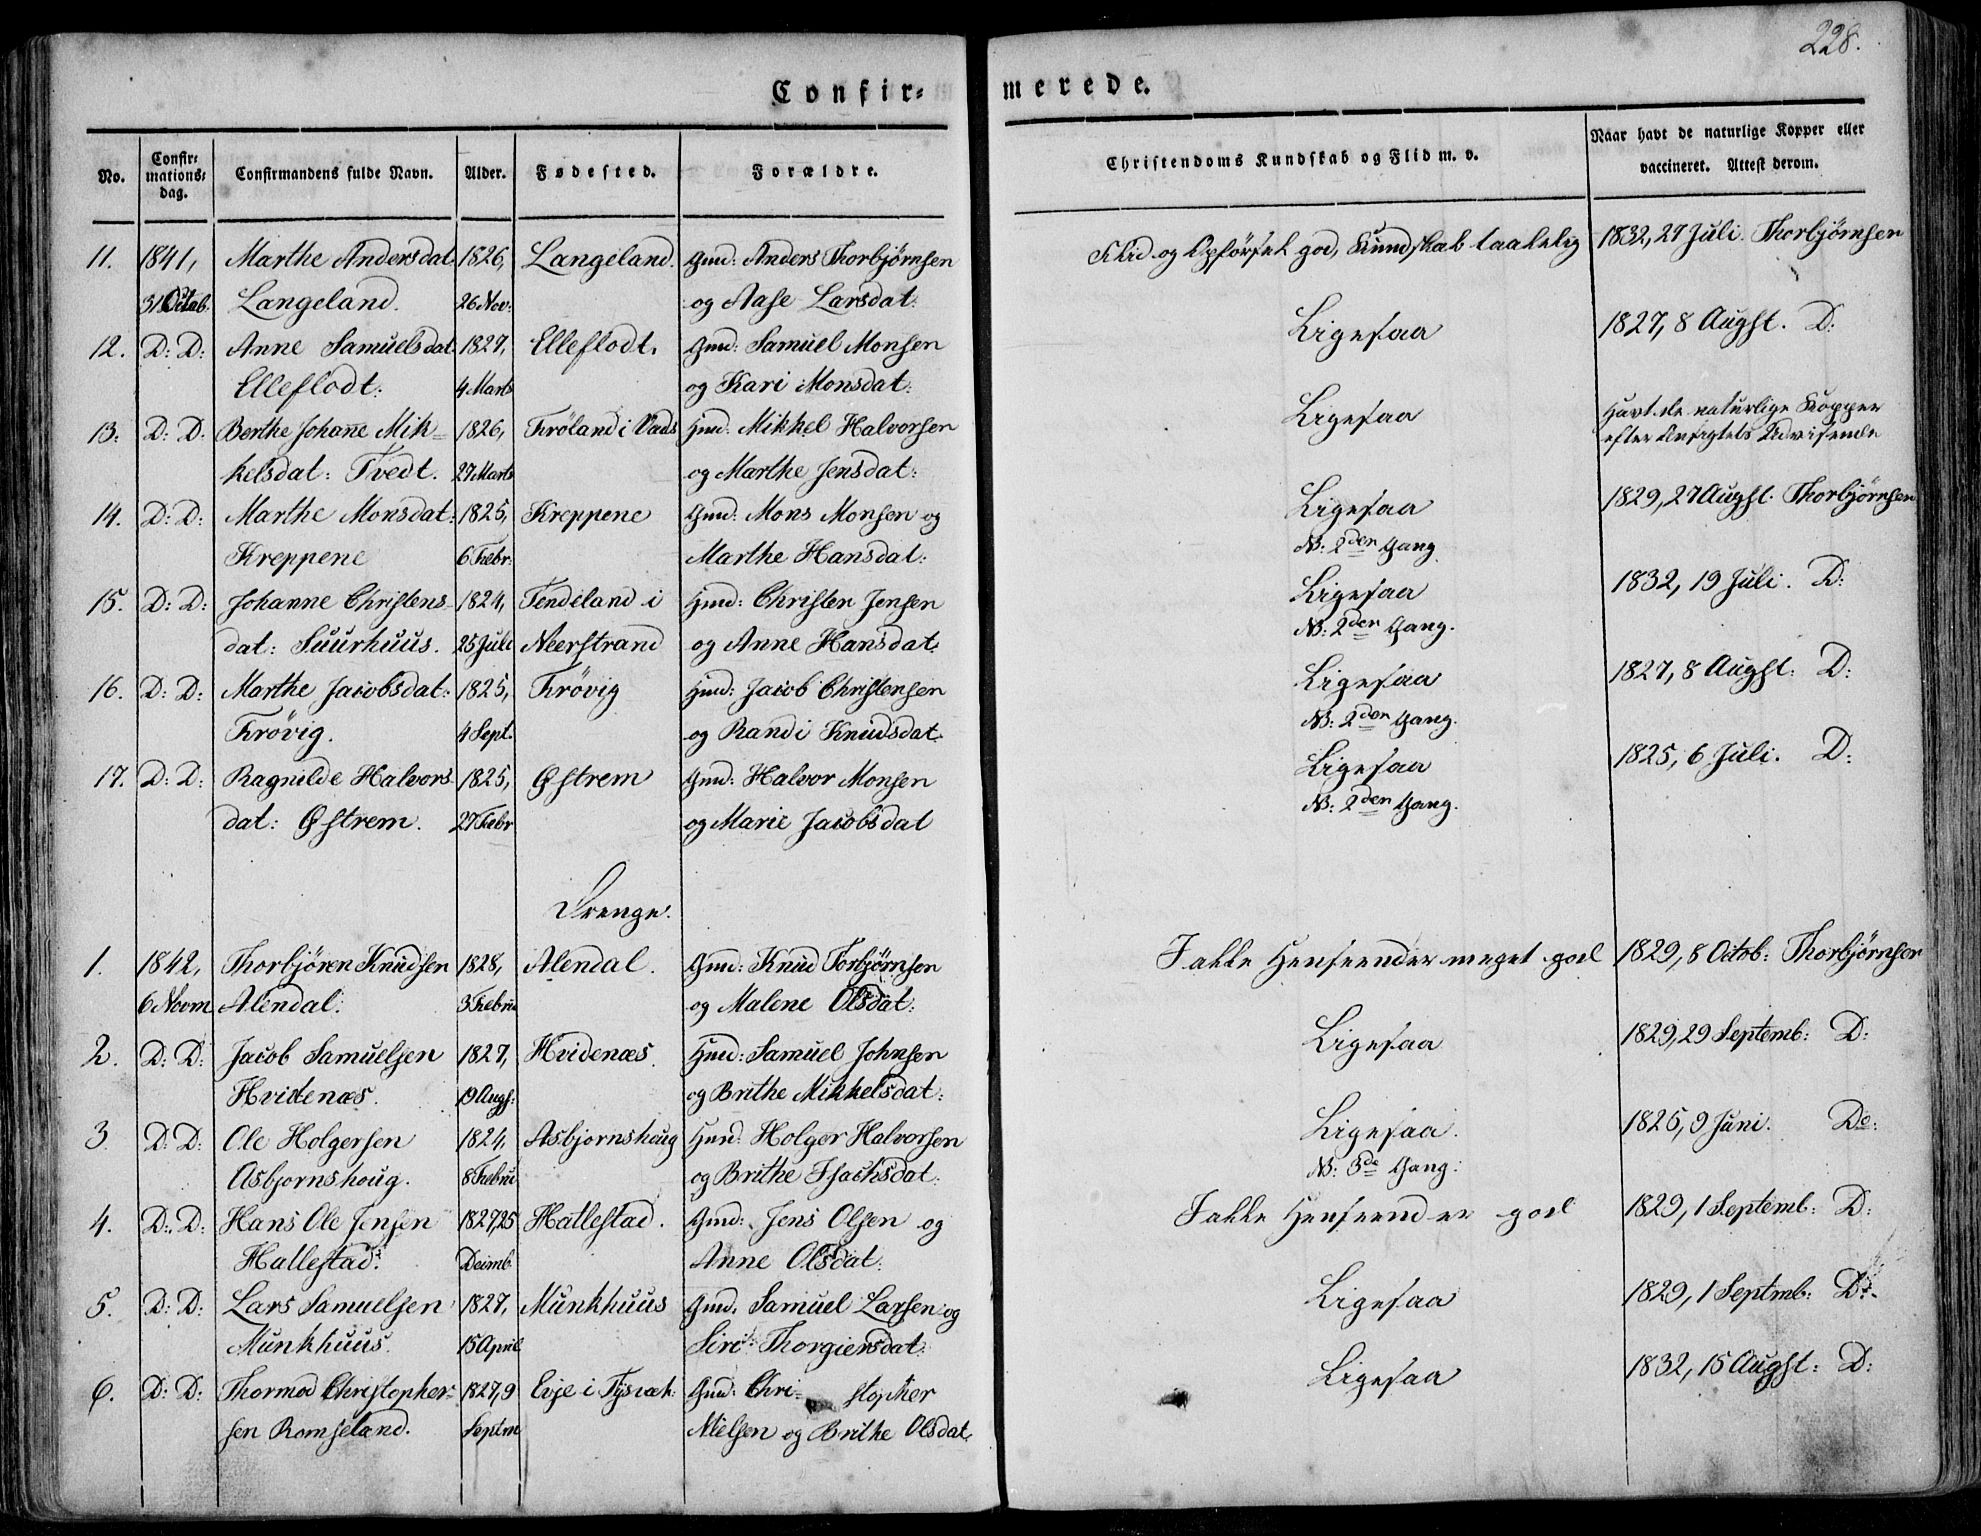 228.
Confir= merede.
No. Confir= mations= dag. Confirmandens fulde Navn. Alder. Fødested. Forældre. Christendoms Kundskab og Flid m. v. Naar havt de naturlige Kopper eller vaccineret. Attest derom.
11. 1841, Marthe Andersdat: 1826, Langeland. Gmd: Anders Thorbjørnsen Flid og Opførsel god, Kundskab taalelig 1832, 27 Juli. Thorbjørnsen
31 Octob. Langeland. 26 Nov: og Aase Larsdat:
12. D: D: Anne Samuelsdat 1827, Elleflodt. Gmd: Samuel Monsen Ligesaa 1827, 8 Augst. D:
Elleflodt. 4 Marts og Kari Monsdat:
13. D: D: Berthe Johane Mik= 1826, Frøland i Vads Hmd: Mikkel Halvorsen Ligesaa Havt de naturlige Kopper
efter Ansigtets Udvisende
kelsdat: Tvedt. 27 Marts og Marthe Jensdat:
14. D: D: Marthe Monsdat: 1825, Kreppene Gmd: Mons Monsen og Ligesaa 1829, 27 Augst. Thorbjørnsen
Kreppene 6 Febr: Marthe Hansdat: NB: 2den Gang.
15. D: D: Johanne Christens= 1824, Tendeland i Hmd: Christen Jensen Ligesaa 1832, 19 Juli. D:
dat: Suurhuus. 25 Juli Neerstrand og Anne Hansdat. NB: 2den Gang.
16. D: D: Marthe Jacobsdat: 1825, Frøvig Hmd: Jacob Christensen Ligesaa 1827, 8 Augst: D:
Frøvig. 4 Sept. og Randi Knudsdat. NB: 2den Gang.
17. D: D: Ragnilde Halvors= 1825, Østrem Gmd: Halvor Monsen Ligesaa 1825, 6 Juli. D:
dat: Østrem. 27 Febr og Marie Jacobsdat NB: 2den Gang.
Drenge.
1. 1842, Thorbjøren Knudsen 1828, Alendal. Gmd: Knud Torbjørnsen I alle Henseender meget god 1829, 8 Octob: Thorbjørnsen
6 Novm Alendal. 3 Febru og Malene Olsdat:
2. D: D: Jacob Samuelsen 1827, Hvidenæs. Hmd: Samuel Johnsen Ligesaa 1829, 29 Septemb: D:
Hvidenæs. 19 Augs: og Brithe Mikkelsdat:
3. D: D: Ole Holgersen 1824, Asbjornshoug Hmd: Holger Halvorsen Ligesaa. 1825, 9 Juni. Do:
Asbjornshoug. 8 Febru og Brithe Isachsdat: NB: 3de Gang.
4. D: D: Hans Ole Jensen 1827, 25 Hallestad. Gmd: Jens Olsen og I alle Henseender god 1829, 1 Septemb: D:
Hallestad. Decmb. Anne Olsdat:
5. D: D: Lars Samuelsen 1827, Munkhuus Gmd: Samuel Larsen og Ligesaa 1829, 1 Septmb: D:
Munkhuus. 15 April Siri Thorgiersdat:
6. D: D: Thormod Christopher= 1827, 9 Evje i Tysvæh: Gmd: Chri= stopher Ligesaa 1832, 15 Augst: D:
sen Romseland. Septm Nielsen og Brithe Olsdat.